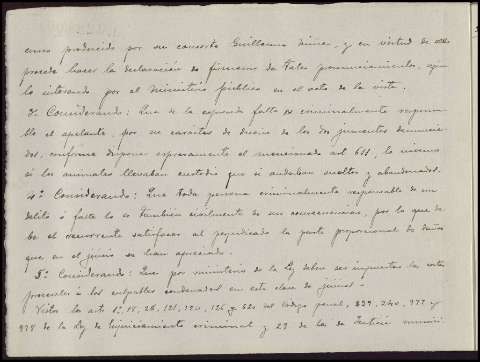 como producido por su consorte Guillermo Núñez, y en virtud de ello
procede hacer la declaración de firmeza de tales pronunciamientos, según
lo interesado por el Ministerio público en el acto de la vista.
3º Considerando: Que de la segunda falta es criminalmente responsa-
ble el apelante, por su carácter de dueño de los dos jumentos denuncia-
dos, conforme dispone expresamente el mencionado art 611, lo mismo
si los animales llevaban custodia que si andaban sueltos y abandonados.
4º Considerando: Que toda persona criminalmente responsable de un
delito ó falta lo es también civilmente de sus consecuencias, por lo que de-
be el recurrente satisfacer al perjudicado la parte proporcional de daños
que en el juicio se han apreciado.
5º Considerando: Que por ministerio de la Ley deben ser impuestas las costas
procesales á los culpables condenados en esta clase de juicios.
Vistos los arts 1º, 18, 26, 121, 124, 126 y 620 del Código penal, 239, 240, 977 y
978 de la Ley de Enjuiciamiento criminal y 23 de la de Justicia munici-